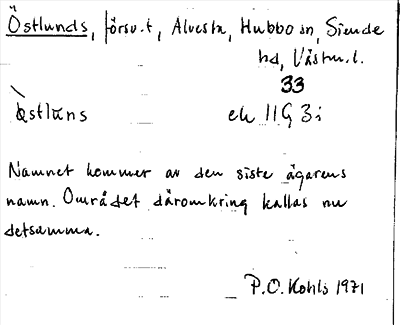 Östlunds, försv.t, Alvesta, Hubbo sn, Siende
hd, Västm.l.
33
östlūns ek 11G 3i
Namnet kommer av den siste ägarens
namn. Området däromkring kallas nu
detsamma.
P.O. Kohls 1971